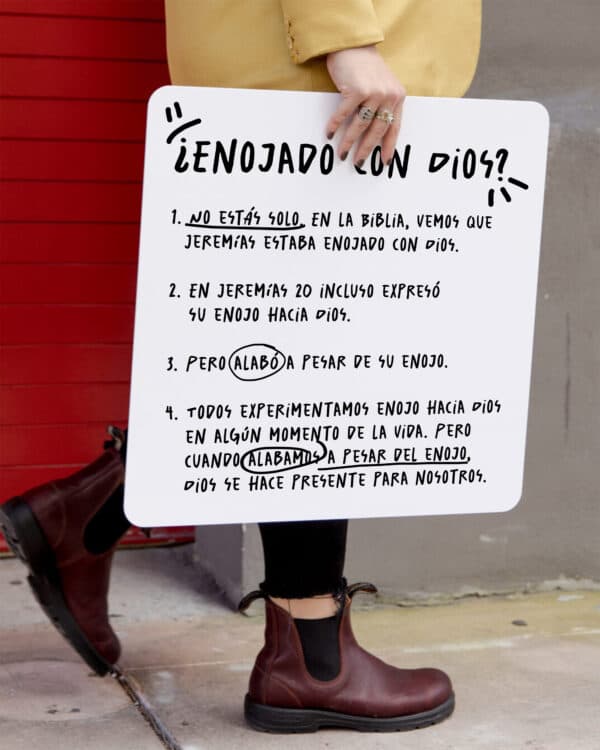 ¿ENOJADO CON DIOS?
1. NO ESTÁS SOLO. EN LA BIBLIA, VEMOS QUE
JEREMÍAS ESTABA ENOJADO CON DIOS.
2. EN JEREMÍAS 20 INCLUSO EXPRESÓ
SU ENOJO HACIA DIOS.
3. PERO ALABÓ A PESAR DE SU ENOJO.
4. TODOS EXPERIMENTAMOS ENOJO HACIA DIOS
EN ALGÚN MOMENTO DE LA VIDA. PERO
CUANDO ALABAMOS A PESAR DEL ENOJO,
DIOS SE HACE PRESENTE PARA NOSOTROS.